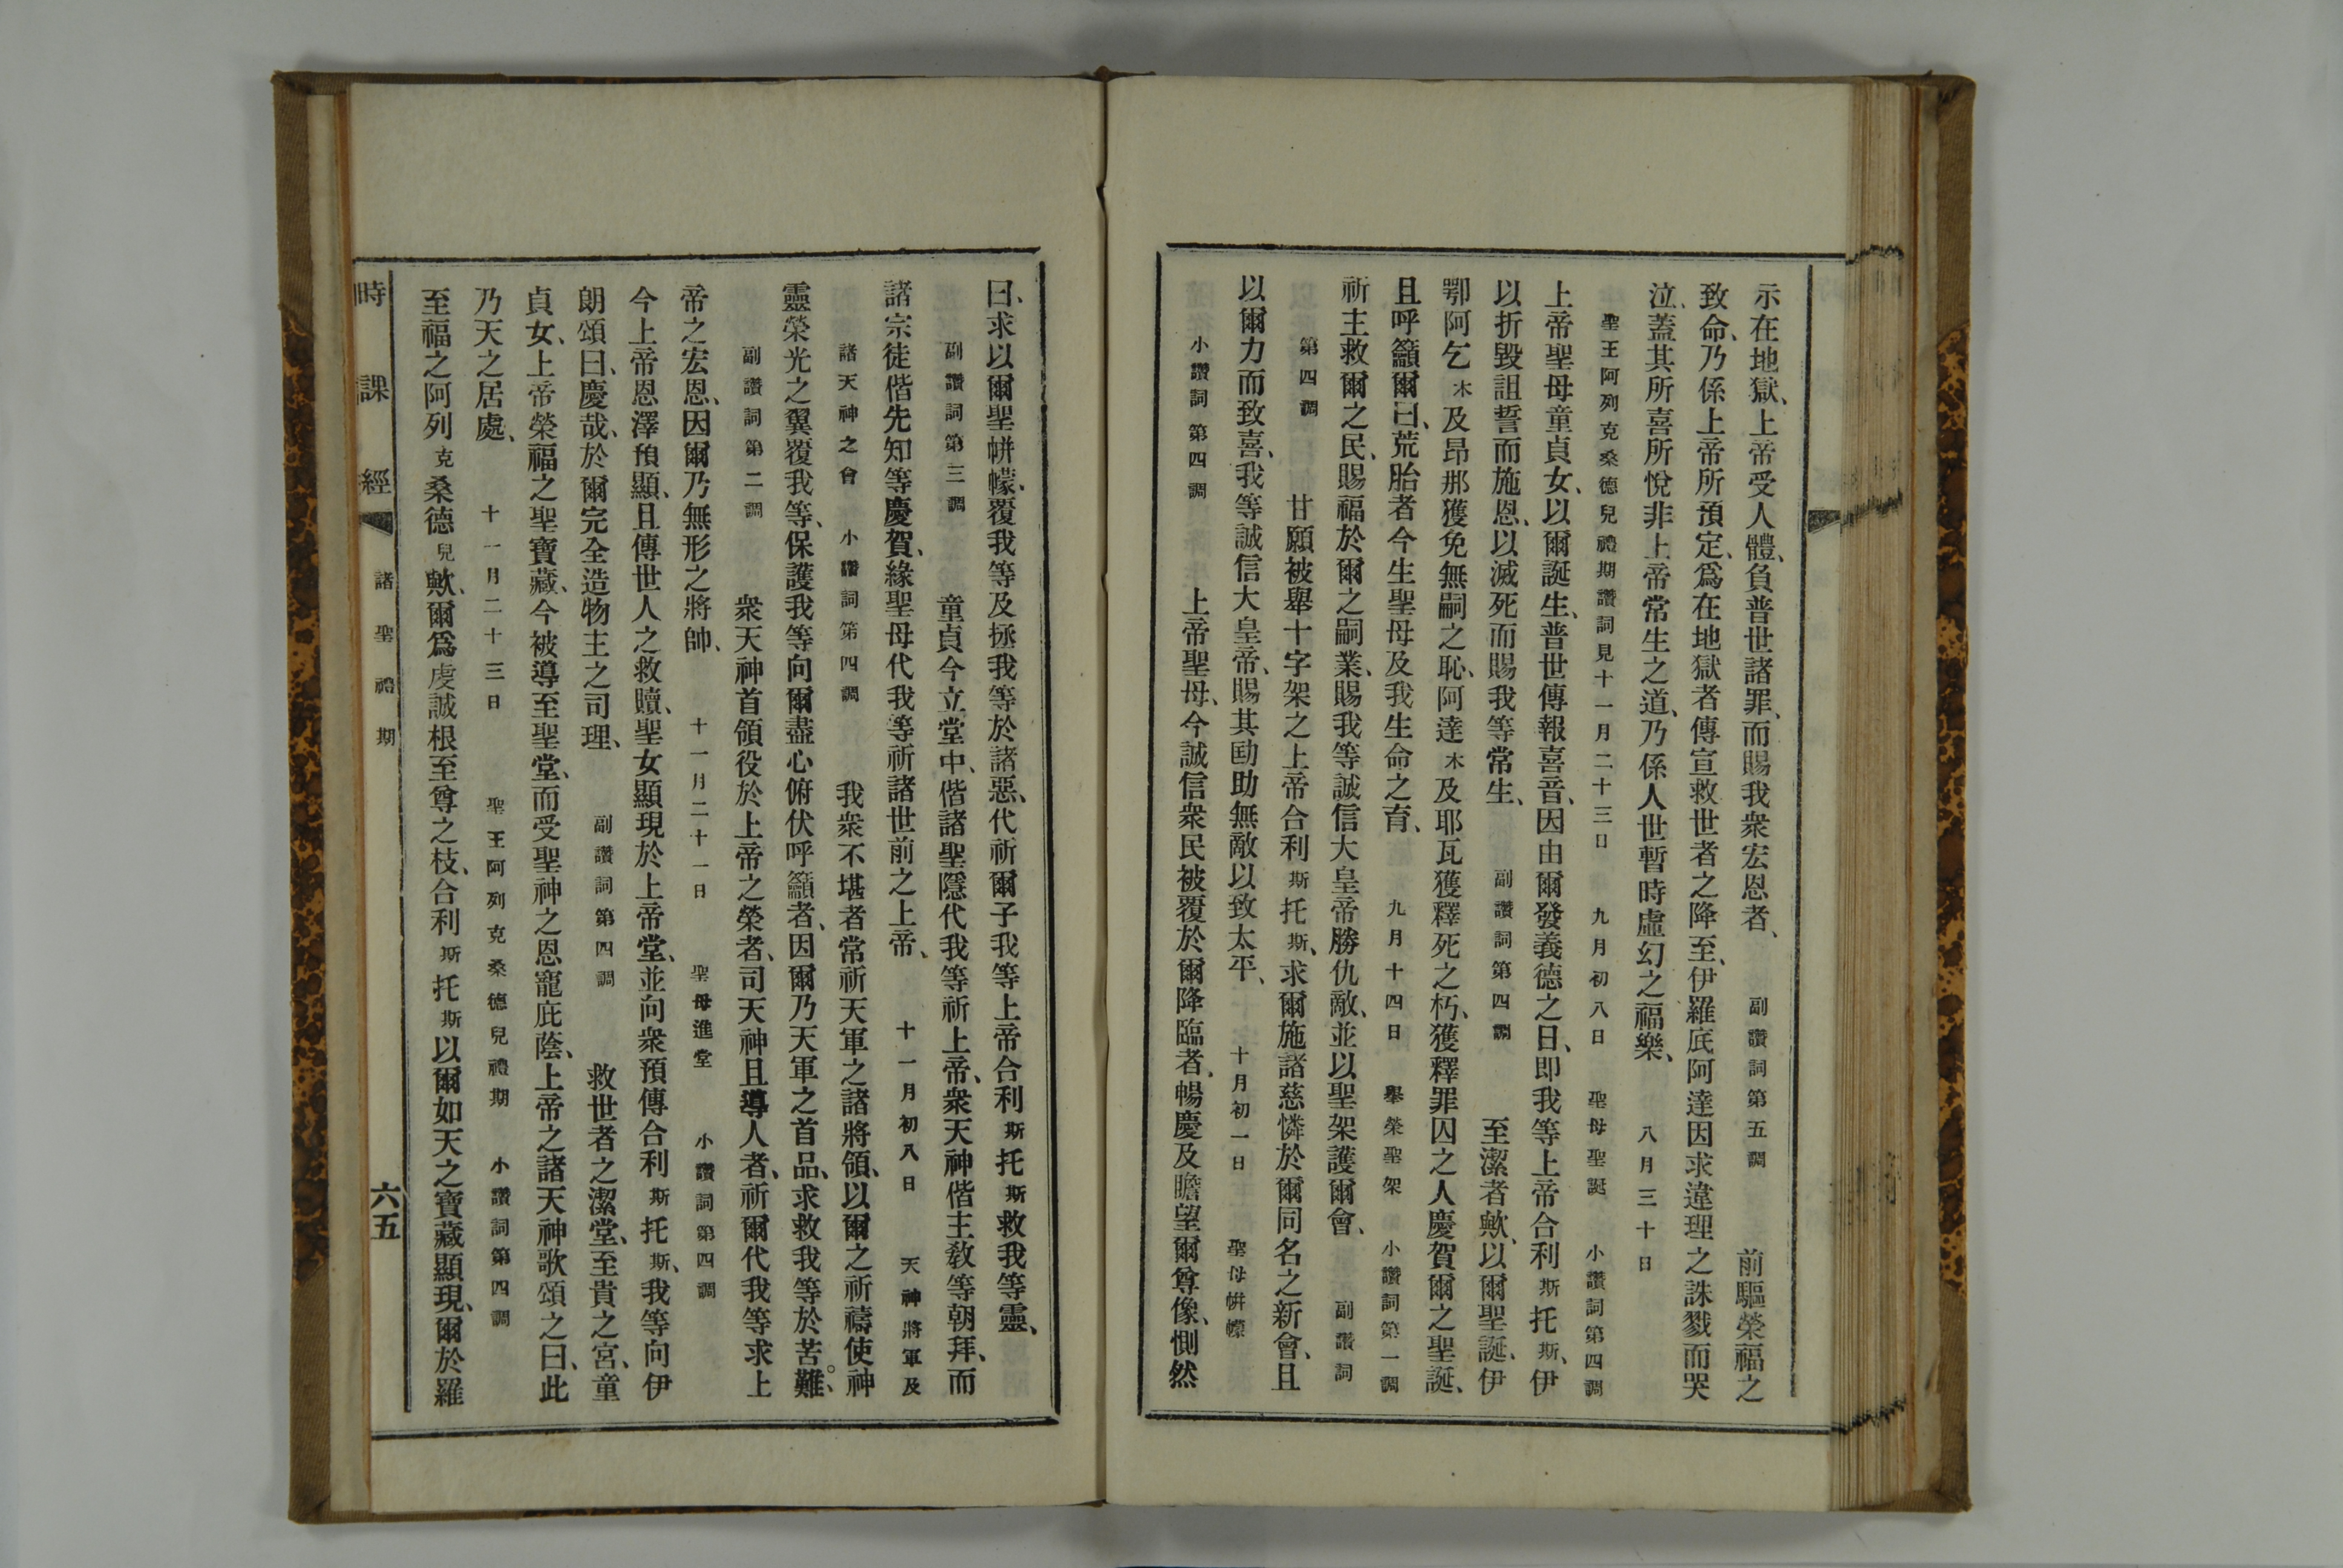 示在地獄、上帝受人體、負普世諸罪、而賜我衆宏恩者、 副讚詞第五調 前驅榮福之
致命、乃係上帝所預定、爲在地獄者傳宣救世者之降至、伊羅底阿達因求違理之誅戮而哭
泣、蓋其所喜所悅非上帝常生之道、乃係人世暫時虛幻之福樂、 八月三十日
聖王阿列克桑德兒禮期讚詞見十一月二十三日 九月初八日 聖母聖誕 小讚詞第四調
上帝聖母童貞女、以爾誕生、普世傳報喜音、因由爾發義德之日、即我等上帝合利斯托斯、伊
以折毀詛誓而施恩、以滅死而賜我等常生、 副讚詞第四調 至潔者歟、以爾聖誕、伊
鄂阿乞木及昂那獲免無嗣之恥、阿達木及耶瓦獲釋死之朽、獲釋罪囚之人慶賀爾之聖誕、
且呼籲爾曰、荒胎者今生聖母及我生命之育、 九月十四日 舉榮聖架 小讚詞第一調
祈主救爾之民、賜福於爾之嗣業、賜我等誠信大皇帝勝仇敵、並以聖架護爾會、 副讚詞
第四調 甘願被舉十字架之上帝合利斯托斯、求爾施諸慈憐於爾同名之新會、且
以爾力而致喜、我等誠信大皇帝、賜其勖助無敵以致太平、 十月初一日 聖母帡幪
小讚詞第四調 上帝聖母、今誠信衆民被覆於爾降臨者、暢慶及瞻望爾尊像、惻然
曰、求以爾聖帡幪、覆我等及拯我等於諸惡、代祈爾子我等上帝合利斯托斯救我等靈、
副讚詞第三調 童貞今立堂中、偕諸聖隱代我等祈上帝、衆天神偕主教等朝拜、而
諸宗徒偕先知等慶賀、緣聖母代我等祈諸世前之上帝、 十一月初八日 天神將軍及
諸天神之會 小讚詞第四調 我衆不堪者常祈天軍之諸將領、以爾之祈禱使神
靈榮光之翼覆我等、保護我等向爾盡心俯伏呼籲者、因爾乃天軍之首品、求救我等於苦難、
副讚詞第二調 衆天神首領役於上帝之榮者、司天神且導人者、祈爾代我等求上
帝之宏恩、因爾乃無形之將帥、 十一月二十一日 聖母進堂 小讚詞第四調
今上帝恩澤預顯、且傳世人之救贖、聖女顯現於上帝堂、並向衆預傳合利斯托斯、我等向伊
朗頌曰、慶哉、於爾完全造物主之司理、 副讚詞第四調 救世者之潔堂、至貴之宮、童
貞女、上帝榮福之聖寶藏、今被導至聖堂、而受聖神之恩寵庇蔭、上帝之諸天神歌頌之曰、此
乃天之居處、 十一月二十三日 聖王阿列克桑德兒禮期 小讚詞第四調
至福之阿列克桑德兒歟、爾爲虔誠根至尊之枝、合利斯托斯以爾如天之寶藏顯現、爾於羅
時課經 諸聖禮期 六五